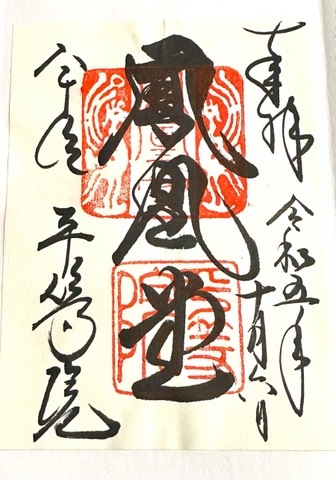 奉拝
令和五年
十月六日
鳳凰堂
宇治
平等院